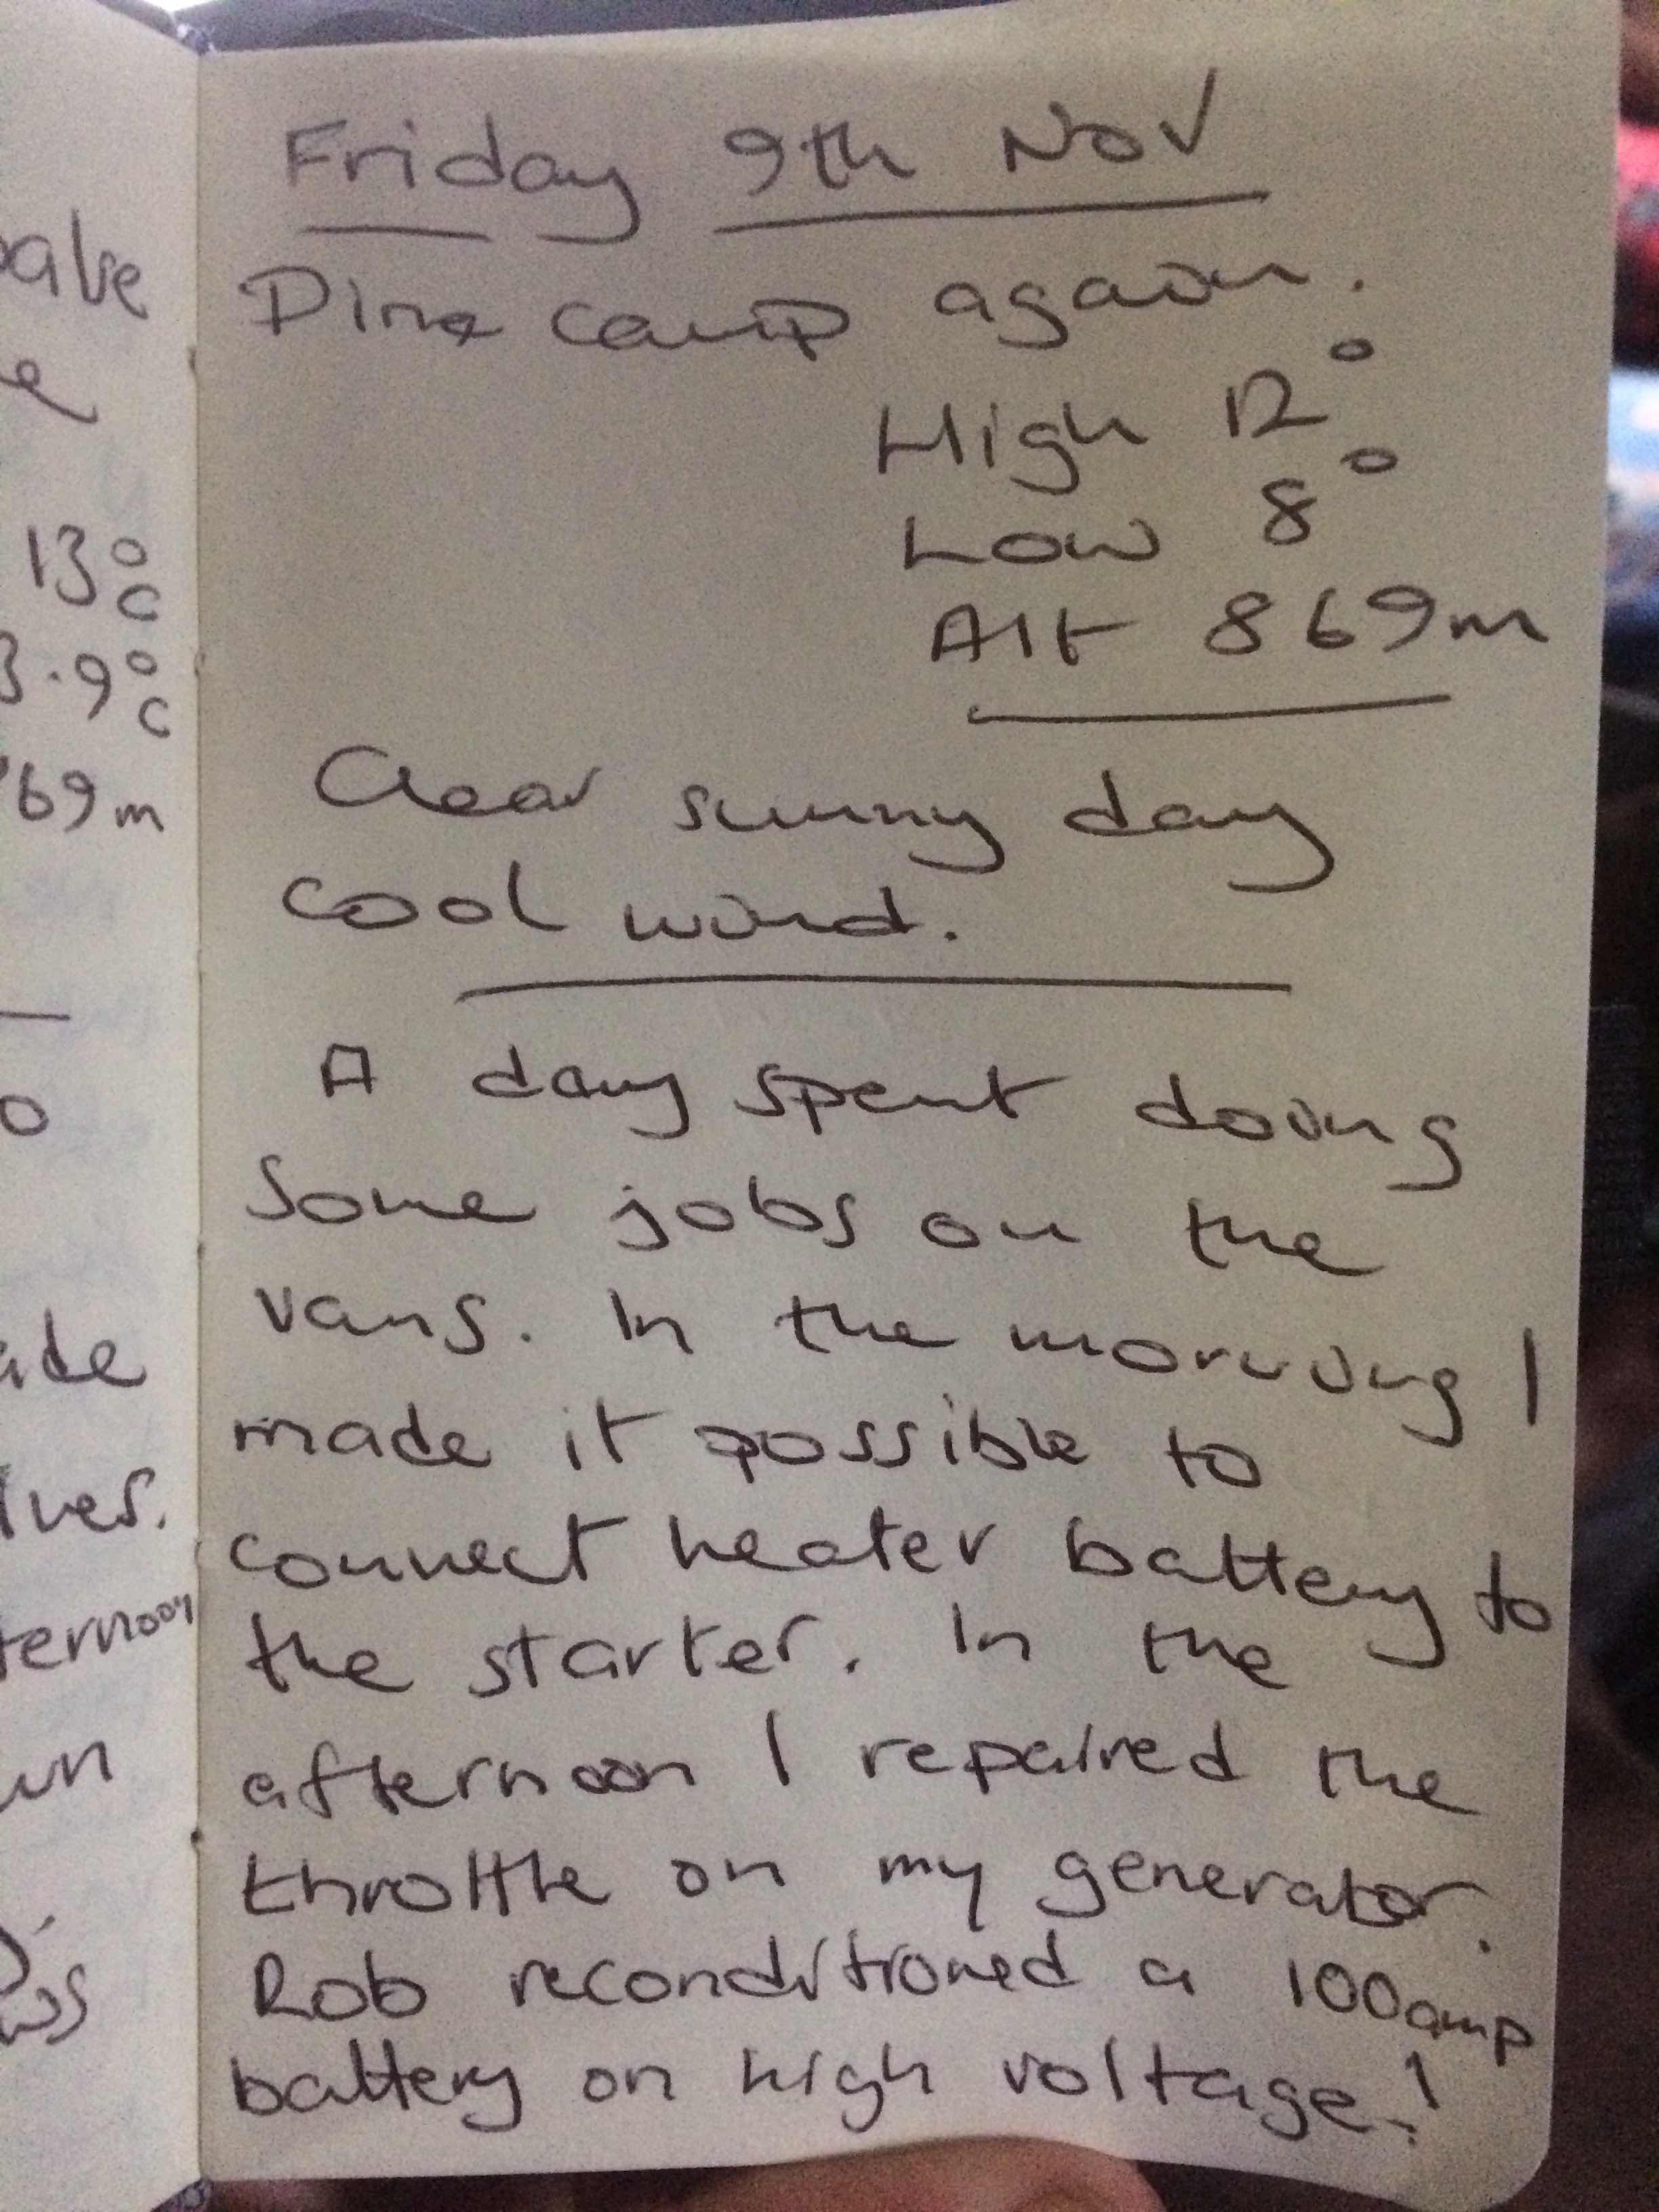 Friday 9th Nov
Pine camp again.
High 12°
Low 8°
Alt 869m
Clear sunny day
cool wind.
A day spent doing
some jobs on the
vans. In the morning I
made it possible to
connect heater battery to
the starter. In the
afternoon I repaired the
throttle on my generator.
Rob reconditioned a 100amp
battery on high voltage!
13°C
3.9°C
69m